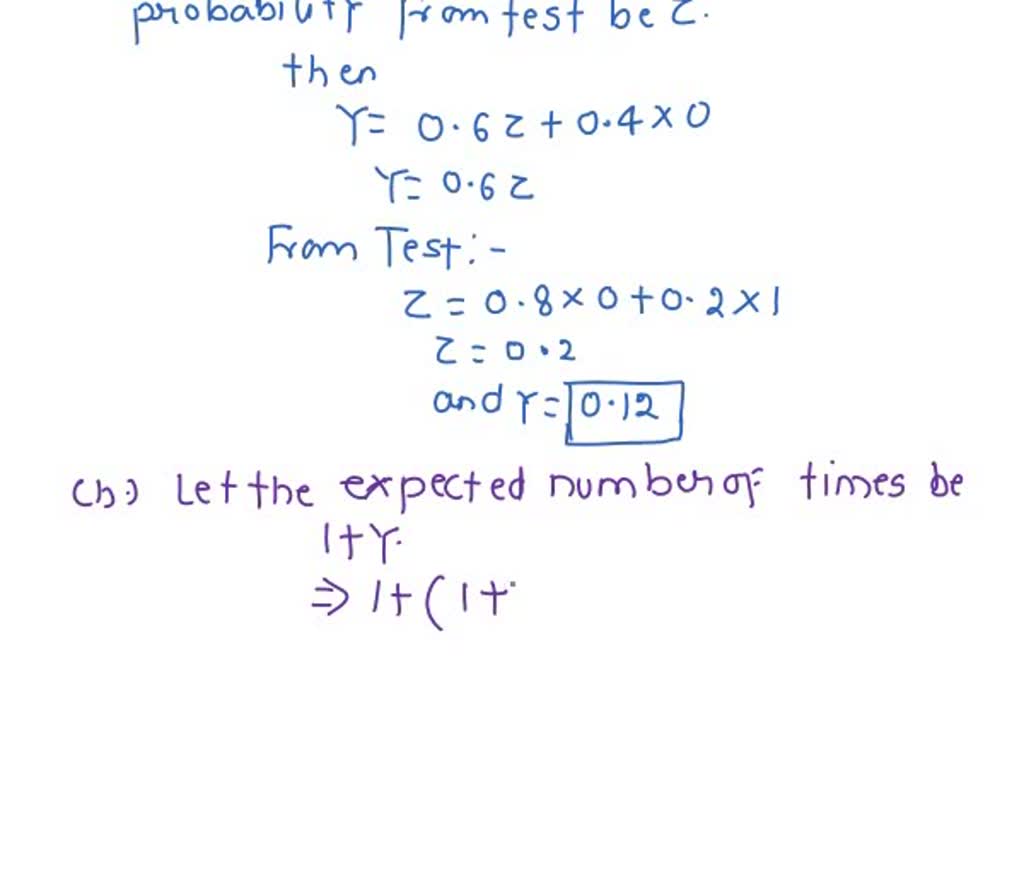 probability from test be z.
then
Y= 0.6z + 0.4×0
Y= 0.6z
From Test:-
z = 0.8×0+0.2×1
z = 0.2
and Y= 0.12
(b) Let the expected number of times be
1+Y.
⇒ 1+(1+